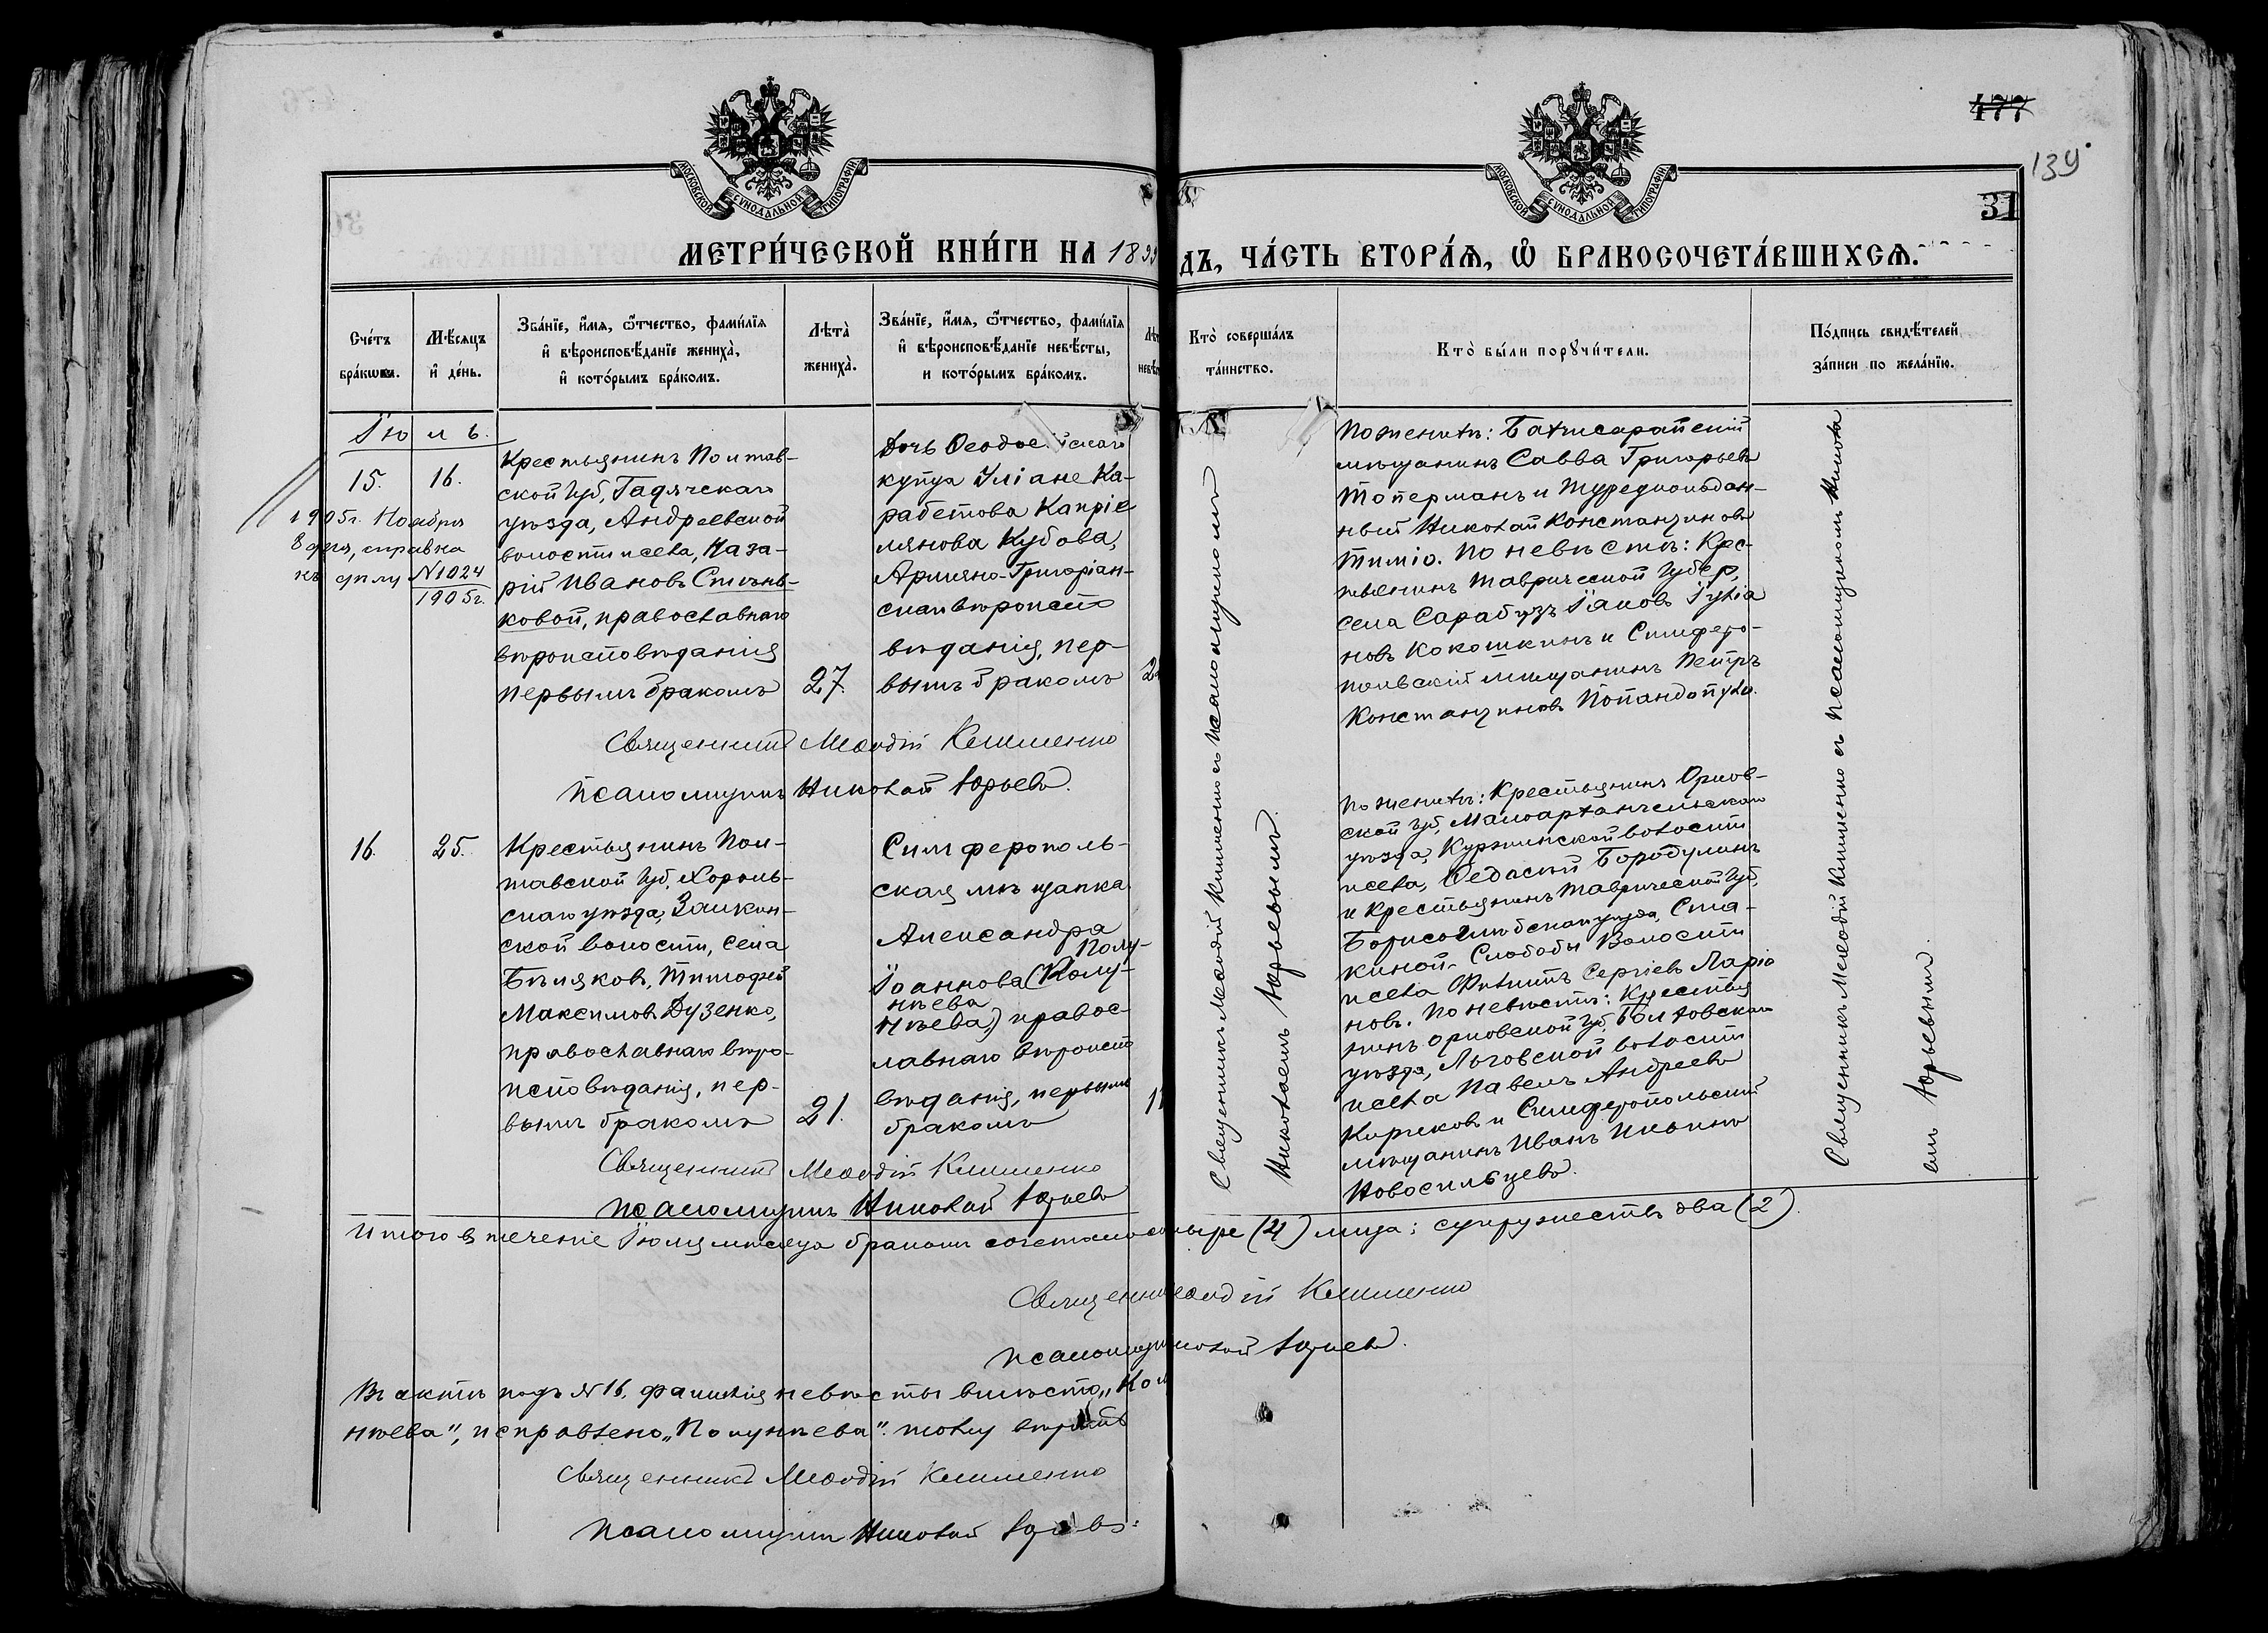 477
139
31
МОСКОВСКОЙ СѴНОДАЛЬНОЙ ТИПОГРАФІИ
МОСКОВСКОЙ СѴНОДАЛЬНОЙ ТИПОГРАФІИ
МЕТРИ́ЧЕСКОЙ КНИ́ГИ НА 1899
ДЪ, ЧА́СТЬ ВТОРА́Ѧ, Ѡ҆ БРАКОСОЧЕТА́ВШИХСѦ.
Сче́тъ
бра́кωвъ.
Мѣ́сяцъ
и҆ де́нь.
Зва́нїе, и҆́мя, ѻ҆́тчество, фами́лїя
и҆ вѣроисповѣ́данїе жениха̀,
и҆ кото́рымъ бра́комъ.
Лѣта̀
жениха̀.
Зва́нїе, и҆́мя, ѻ҆́тчество, фами́лїя
и҆ вѣроисповѣ́данїе невѣ́сты,
и кото́рымъ бра́комъ.
Кто̀ соверша́лъ
та́инство.
Кто̀ бы́ли порꙋчи́тели.
По́дпись свидѣ́телей
за́писи по жела́нїю.
Іюль.
15.
16.
1905г. Ноября
8 дня, справка
къ дѣлу N1024
1905г.
Крестьянинъ Полтав-
ской Губ, Гадячскаго
уѣзда, Андреевской
волости и села, Наза-
рій Ивановъ Стинь-
ковой, православнаго
вѣроисповѣданія
первымъ бракомъ
27.
Дочь Ѳеодосійскаго
купца Уліане Ка-
рабетова Капріе
лянова Кубова,
Армяно-Григоріан-
скаго вѣроиспо
вѣданія, пер-
вымъ бракомъ
2
Священникъ Меѳодій Клименко
Псаломщикъ Николай Юрьевъ.
По женихѣ: Бахчисарайскій
мѣщанинъ Савва Григорьевъ
Топерманъ и Турецкоподан-
ный Николай Константиновъ
Тиміо. По невѣстѣ: Крес-
тьянинъ Таврической Губер,
села Сарабузъ Іяковъ Іуліа
новъ Кокошкинъ и Симферо-
польскій мѣщанинъ Петръ
Константиновъ Попандопуло.
Священникъ Меѳодій Клименко съ псаломщикомъ
Николаемъ Юрьевымъ.
Священникъ Меѳодій Клименко съ псаломщикомъ Никола
емъ Юрьевымъ.
16.
25.
Крестьянинъ Пол-
тавской Губ, Хороль-
скаго уѣзда, Заикин-
ской волости, села
Бѣляковъ, Тимофей
Максимовъ Дузенко,
православнаго вѣро-
исповѣданія, пер-
вымъ бракомъ
21.
Симферополь-
ская мѣщанка
Александра
Полу-
Іоаннова (Колу-
нѣева
нѣева,) правос-
лавнаго вѣроиспо
вѣданія, первымъ
бракомъ
1
Священникъ Меѳодій Клименко
псаломщикъ Николай Юрьевъ
По женихѣ: Крестьянинъ Орлов-
ской губ, Малоархангельскаго
уѣзда, Куракинской волости
и села, Ѳедосій Бородулинъ
и Крестьянинъ Таврической Губ,
Борисоглѣбскаго уѣзда,
Слободы Волости
и села Филипъ Сергіевъ Ларіо
новъ. По невѣстѣ: Крестья
нинъ Орловской Губ, Болховскаго
уѣзда, Льговской волости
и села Павелъ Андреевъ
Киржковъ и Симферопольскій
мѣщанинъ Иванъ
Новосильцевъ.
Итого въ теченіе Іюля мѣсяца бракомъ сочеталось четыре (4) лица; супружествъ два (2).
Священникъ Меѳодій Клименко
псаломщикъ Николай Юрьевъ.
Въ актѣ подъ N16, фамилія невѣсты вмѣсто „Кол
нѣева", исправлено „Полунѣева". тому вѣрить
Священникъ Меѳодій Клименко
псаломщикъ Николай Юрьевъ.